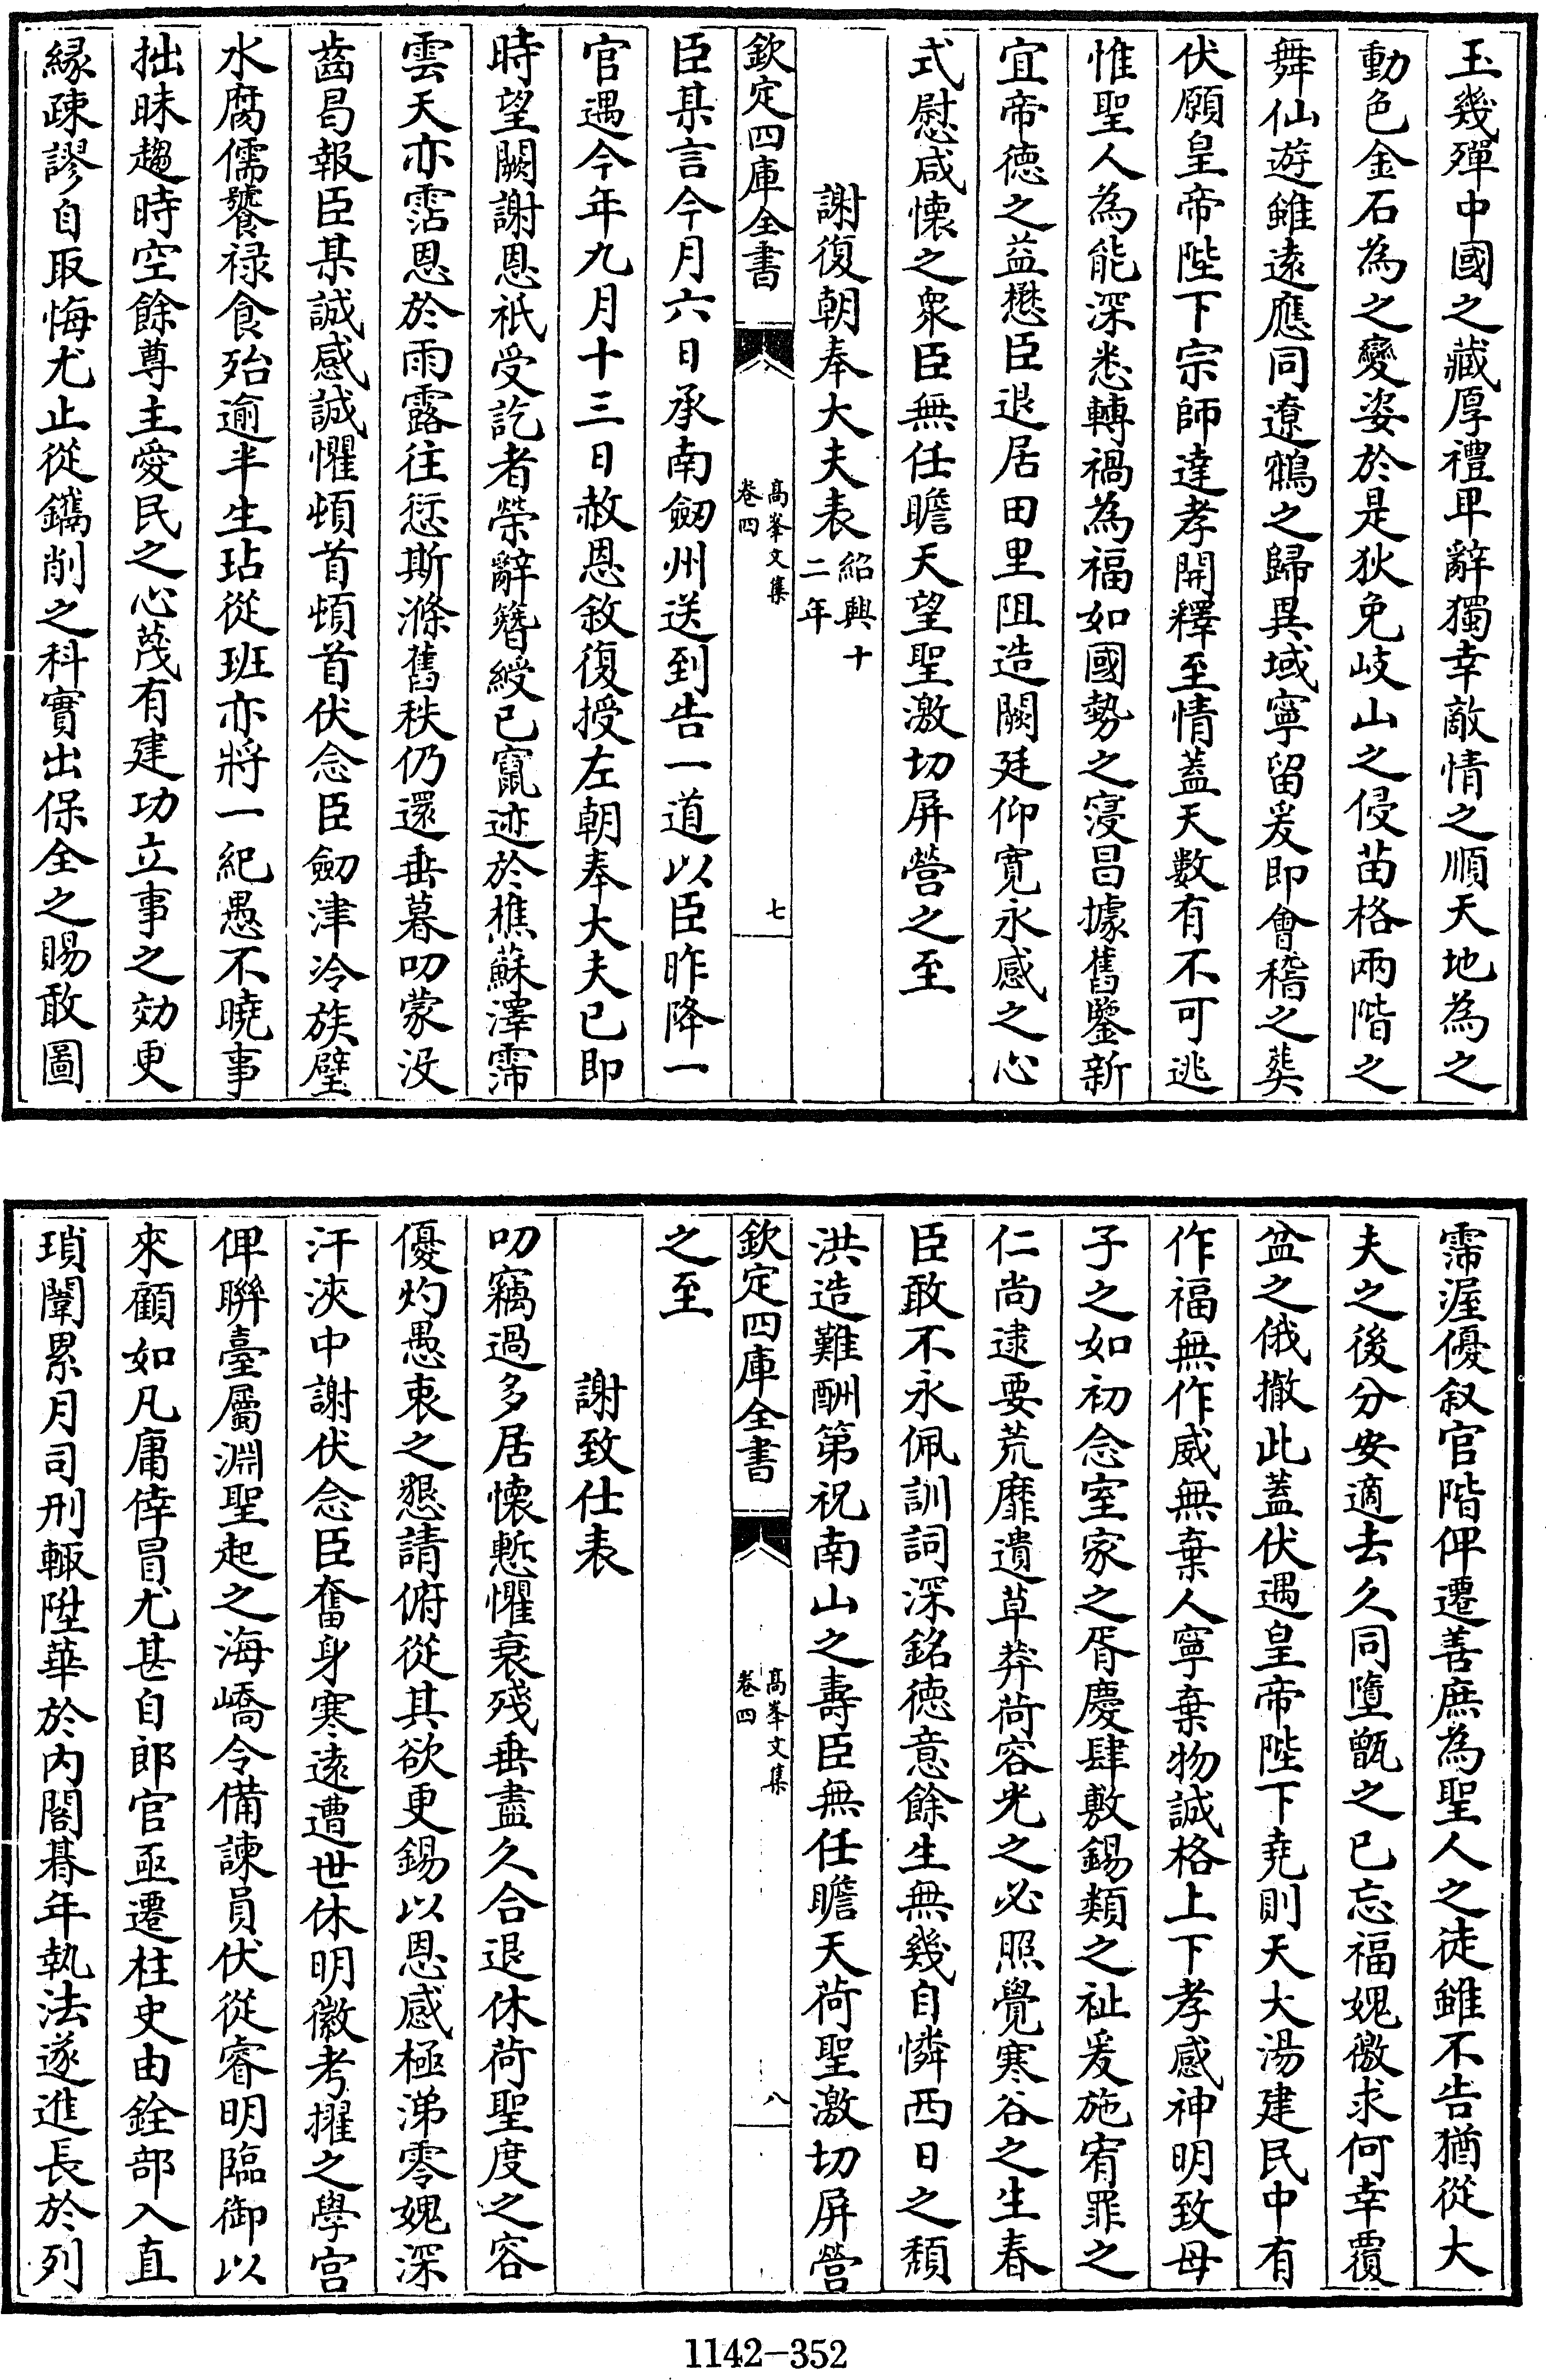 玉幾殫中國之藏厚禮卑辭獨幸敵情之順天地為之
動色金石為之變姿於是狄免岐山之侵苗格兩階之
舞仙遊雖遠應同遼鶴之歸異域寧留爰即會稽之葬
伏願皇帝陛下宗師達孝開釋至情蓋天數有不可逃
惟聖人為能深悉轉禍為福如國勢之寖昌據舊鑒新
宜帝德之益懋臣退居田里阻造闕廷仰寛永感之心
式慰咸懐之衆臣無任瞻天望聖激切屏營之至
謝復朝奉大夫表紹興十
二年
欽定四庫全書
高峯文集
卷四
七
臣某言今月六日承南劒州送到告一道以臣昨降一
官遇今年九月十三日赦恩敘復授左朝奉大夫已即
時望闕謝恩祇受訖者榮辭簪紱已竄迹於樵蘇澤霈
雲天亦霑恩於雨露往愆斯滌舊秩仍還垂暮叨蒙没
齒曷報臣某誠感誠懼頓首頓首伏念臣劒津冷族璧
水腐儒饕禄食殆逾半生玷從班亦將一紀愚不曉事
拙昧趨時空餘尊主愛民之心蔑有建功立事之効更
縁疎謬自取悔尤止從鐫削之科實出保全之賜敢圖
霈渥優叙官階俾遷善庶為聖人之徒雖不告猶從大
夫之後分安適去久同墮甑之已忘福媿徼求何幸覆
盆之俄撤此蓋伏遇皇帝陛下堯則天大湯建民中有
作福無作威無棄人寧棄物誠格上下孝感神明致母
子之如初念室家之胥慶肆敷錫類之祉爰施宥罪之
仁尚逮要荒靡遺草莽荷容光之必照覺寒谷之生春
臣敢不永佩訓詞深銘德意餘生無幾自憐西日之頹
洪造難酬第祝南山之壽臣無任瞻天荷聖激切屏營
欽定四庫全書
高峯文集
卷四
八
之至
謝致仕表
叨竊過多居懐慙懼衰殘垂盡久合退休荷聖度之容
優灼愚衷之懇請俯從其欲更錫以恩感極涕零媿深
汗浹中謝伏念臣奮身寒遠遭世休明徽考擢之學宫
俾聨臺屬淵聖起之海嶠令備諫員伏從睿明臨御以
來顧如凡庸倖冒尤甚自郎官亟遷柱史由銓部入直
瑣闈累月司刑輙陞華於内閣朞年執法遂進長於列
1142-352